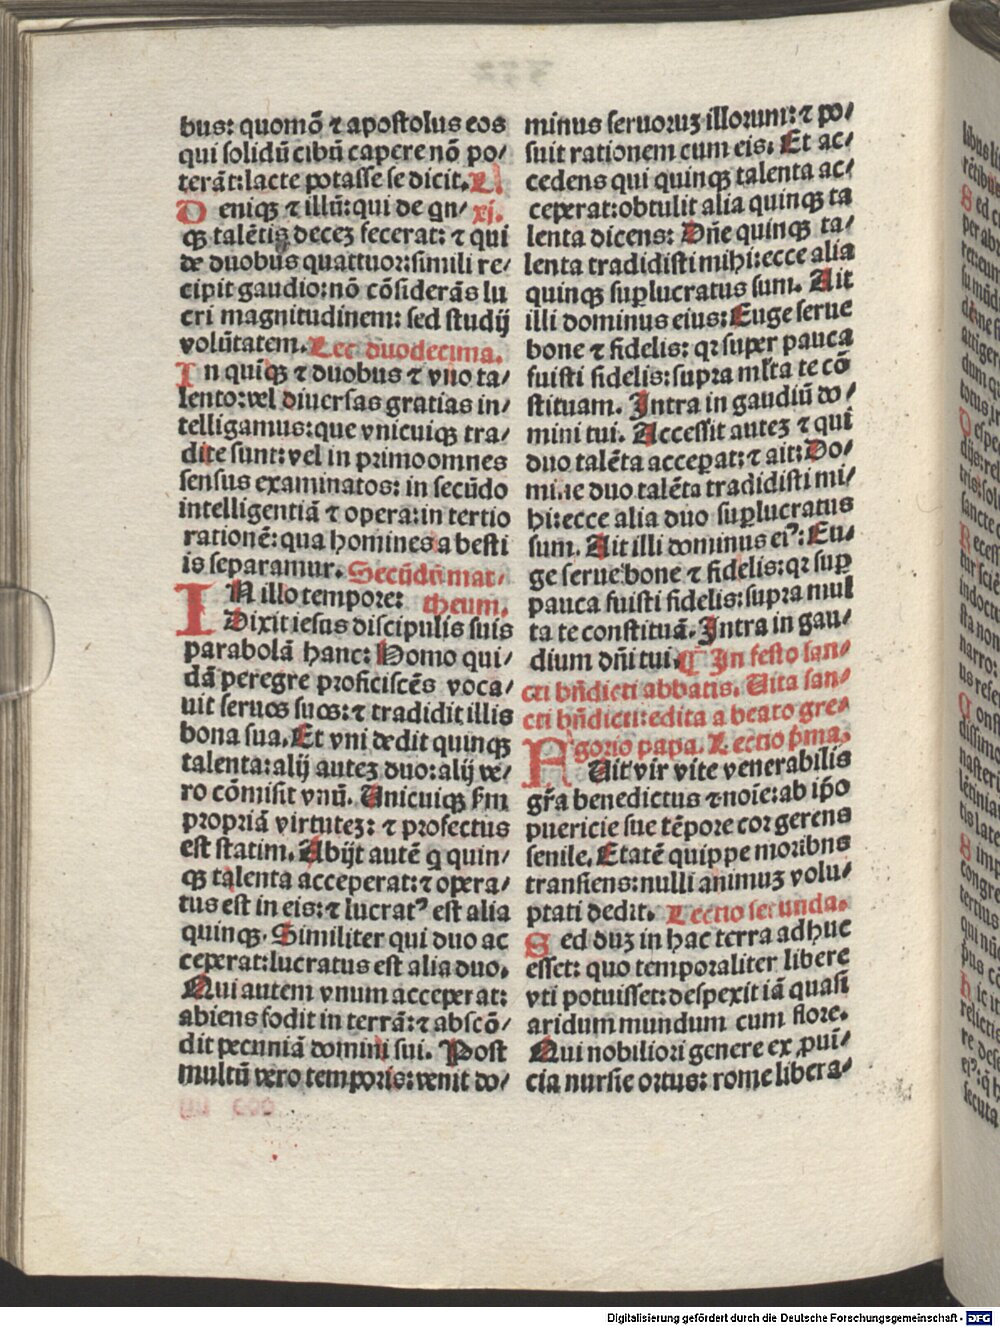 bus: quomõ ⁊ apostolus eos
qui solidũ cibũ capere nõ po/
terãt: lacte potasse se dicit. L̃
Deniqꝫ ⁊ illũ: qui de qn/ xj.
qꝫ talẽtis decez fecerat: ⁊ qui
de duobus quattuor: simili re/
cipit gaudio: nõ cõsiderãs lu
cri magnitudinem: sed studij
volũtatem. Lec duodecima.
In quĩqꝫ ⁊ duobus ⁊ vno ta/
lento: vel diuersas gratias in/
telligamus: que vnicuiqꝫ tra/
dite sunt: vel in primo omnes
sensus examinatos: in secũdo
intelligentiã ⁊ opera: in tertio
rationẽ: qua homines a besti
is separamur. Secũdũ mat/
IN illo tempore: theum.
Dixit iesus discipulis suis
parabolã hanc: Homo qui/
dã peregre proficiscẽs voca/
uit seruos suos: ⁊ tradidit illis
bona sua. Et vni dedit quinqꝫ
talenta: alij autez duo: alij ve/
ro cõmisit vnũ. Unicuiqꝫ ẜm
propriã virtutez: ⁊ profectus
est statim. Abijt autẽ q̇ quin/
qꝫ talenta acceperat: ⁊ opera/
tus est in eis: ⁊ lucratꝰ est alia
quinqꝫ. Similiter qui duo ac
ceperat: lucratus est alia duo.
Qui autem vnum acceperat:
abiens fodit in terrã: ⁊ abscõ/
dit pecuniã domini sui. Post
multũ vero temporis: venit do/
minus seruoruz illorum: ⁊ po/
suit rationem cum eis. Et ac/
cedens qui quinqꝫ talenta ac/
ceperat: obtulit alia quinqꝫ ta
lenta dicens: Dñe quinqꝫ ta/
lenta tradidisti mihi: ecce alia
quinqꝫ suꝑlucratus sum. Ait
illi dominus eius: Euge serue
bone ⁊ fidelis: qꝛ super pauca
fuisti fidelis: supra ml̃ta te cõ
stituam. Intra in gaudiũ do/
mini tui. Accessit autez ⁊ qui
duo talẽta acceꝑat: ⁊ ait: Do/
mine duo talẽta tradidisti mi/
hi: ecce alia duo suꝑlucratus
sum. Ait illi dominus eiꝰ: Eu/
ge serue bone ⁊ fidelis: qꝛ suꝑ
pauca fuisti fidelis: supra mul
ta te constituã. Intra in gau/
dium dñi tui. ¶ In festo san/
cti bñdicti abbatis. Uita san/
cti bñdicti: edita a beato gre/
gorio papa. Lectio p̃ma.
FUit vir vite venerabilis
gr̃a benedictus ⁊ noĩe: ab ip̃o
puericie sue tẽpore cor gerens
senile. Etatẽ quippe moribns
transiens: nulli animuz volu/
ptati dedit. Lectio secunda.
Sed duz in hac terra adhuc
esset: quo temporaliter libere
vti potuisset: despexit iã quasi
aridum mundum cum flore.
Qui nobiliori genere ex ꝓuĩ/
cia nursie ortus: rome libera/
Digitalisierung gefördert durch die Deutsche Forschungsgemeinschaft - DFG